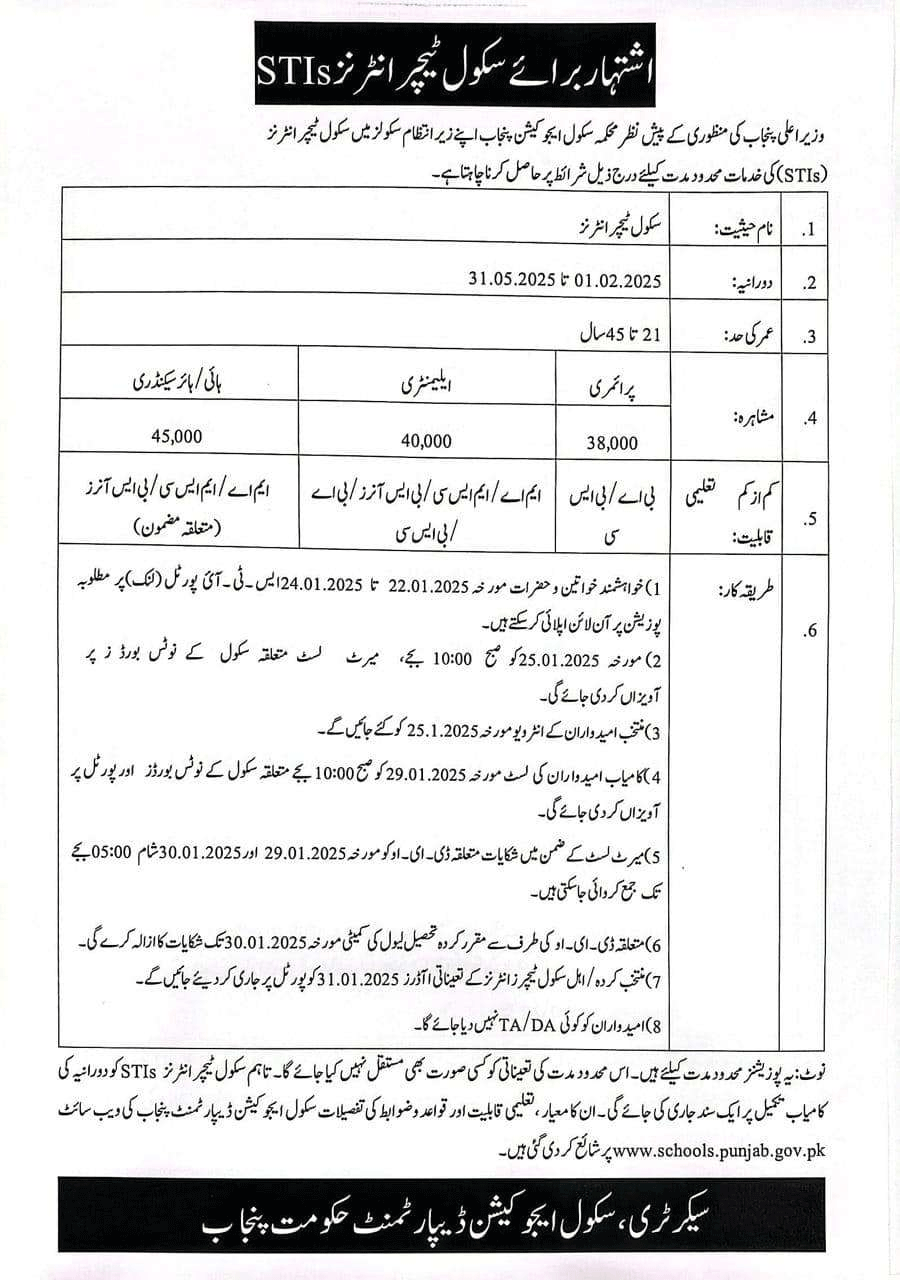 اشتہار برائے سکول ٹیچر انٹرنز STIs
وزیر اعلی پنجاب کی منظوری کے پیش نظر محکمہ سکول ایجوکیشن پنجاب اپنے زیر انتظام سکولز میں سکول ٹیچر انٹرنز
(STIs) کی خدمات محدود مدت کیلئے درج ذیل شرائط پر حاصل کرنا چاہتا ہے۔
1. نام حیثیت: سکول ٹیچر انٹرنز
2. دورانیہ: 01.02.2025 تا 31.05.2025
3. عمر کی حد: 21 تا 45 سال
4. مشاہرہ: پرائمری ایلیمنٹری ہائی/ہائر سیکنڈری
38,000 40,000 45,000
5. کم از کم تعلیمی بی اے/بی ایس ایم اے/ایم ایس سی/بی ایس آنرز/بی اے ایم اے/ایم ایس سی/بی ایس آنرز
قابلیت: سی /بی ایس سی (متعلقہ مضمون)
6. طریقہ کار: 1) خواہشمند خواتین و حضرات مورخہ 22.01.2025 تا 24.01.2025 ایس۔ٹی۔آئی پورٹل (لنک) پر مطلوبہ
پوزیشن پر آن لائن اپلائی کر سکتے ہیں۔
2) مورخہ 25.01.2025 کو صبح 10:00 بجے، میرٹ لسٹ متعلقہ سکول کے نوٹس بورڈ ز پر
آویزاں کر دی جائے گی۔
3) منتخب امیدواران کے انٹرویو مورخہ 25.1.2025 کو کئے جائیں گے۔
4) کامیاب امیدواران کی لسٹ مورخہ 29.01.2025 کو صبح 10:00 بجے متعلقہ سکول کے نوٹس بورڈز اور پورٹل پر
آویزاں کر دی جائے گی۔
5) میرٹ لسٹ کے ضمن میں شکایات متعلقہ ڈی۔ای۔او کو مورخہ 29.01.2025 اور 30.01.2025 شام 05:00 بجے
تک جمع کروائی جا سکتی ہیں۔
6) متعلقہ ڈی۔ای۔او کی طرف سے مقرر کردہ تحصیل لیول کی کمیٹی مورخہ 30.01.2025 تک شکایات کا ازالہ کرے گی۔
7) منتخب کردہ/اہل سکول ٹیچرز انٹرنز کے تعیناتی آآڈرز 31.01.2025 کو پورٹل پر جاری کر دیئے جائیں گے۔
8) امیدواران کو کوئی TA/DA نہیں دیا جائے گا۔
نوٹ: یہ پوزیشنز محدود مدت کیلئے ہیں۔ اس محدود مدت کی تعیناتی کو کسی صورت بھی مستقل نہیں کیا جائے گا۔ تاہم سکول ٹیچر انٹرنز STIs کو دورانیہ کی
کامیاب تکمیل پر ایک سند جاری کی جائے گی۔ ان کا معیار، تعلیمی قابلیت اور قواعد و ضوابط کی تفصیلات سکول ایجوکیشن ڈیپارٹمنٹ پنجاب کی ویب سائٹ
www.schools.punjab.gov.pk پر شائع کر دی گئی ہیں۔
سیکرٹری، سکول ایجوکیشن ڈیپارٹمنٹ حکومت پنجاب